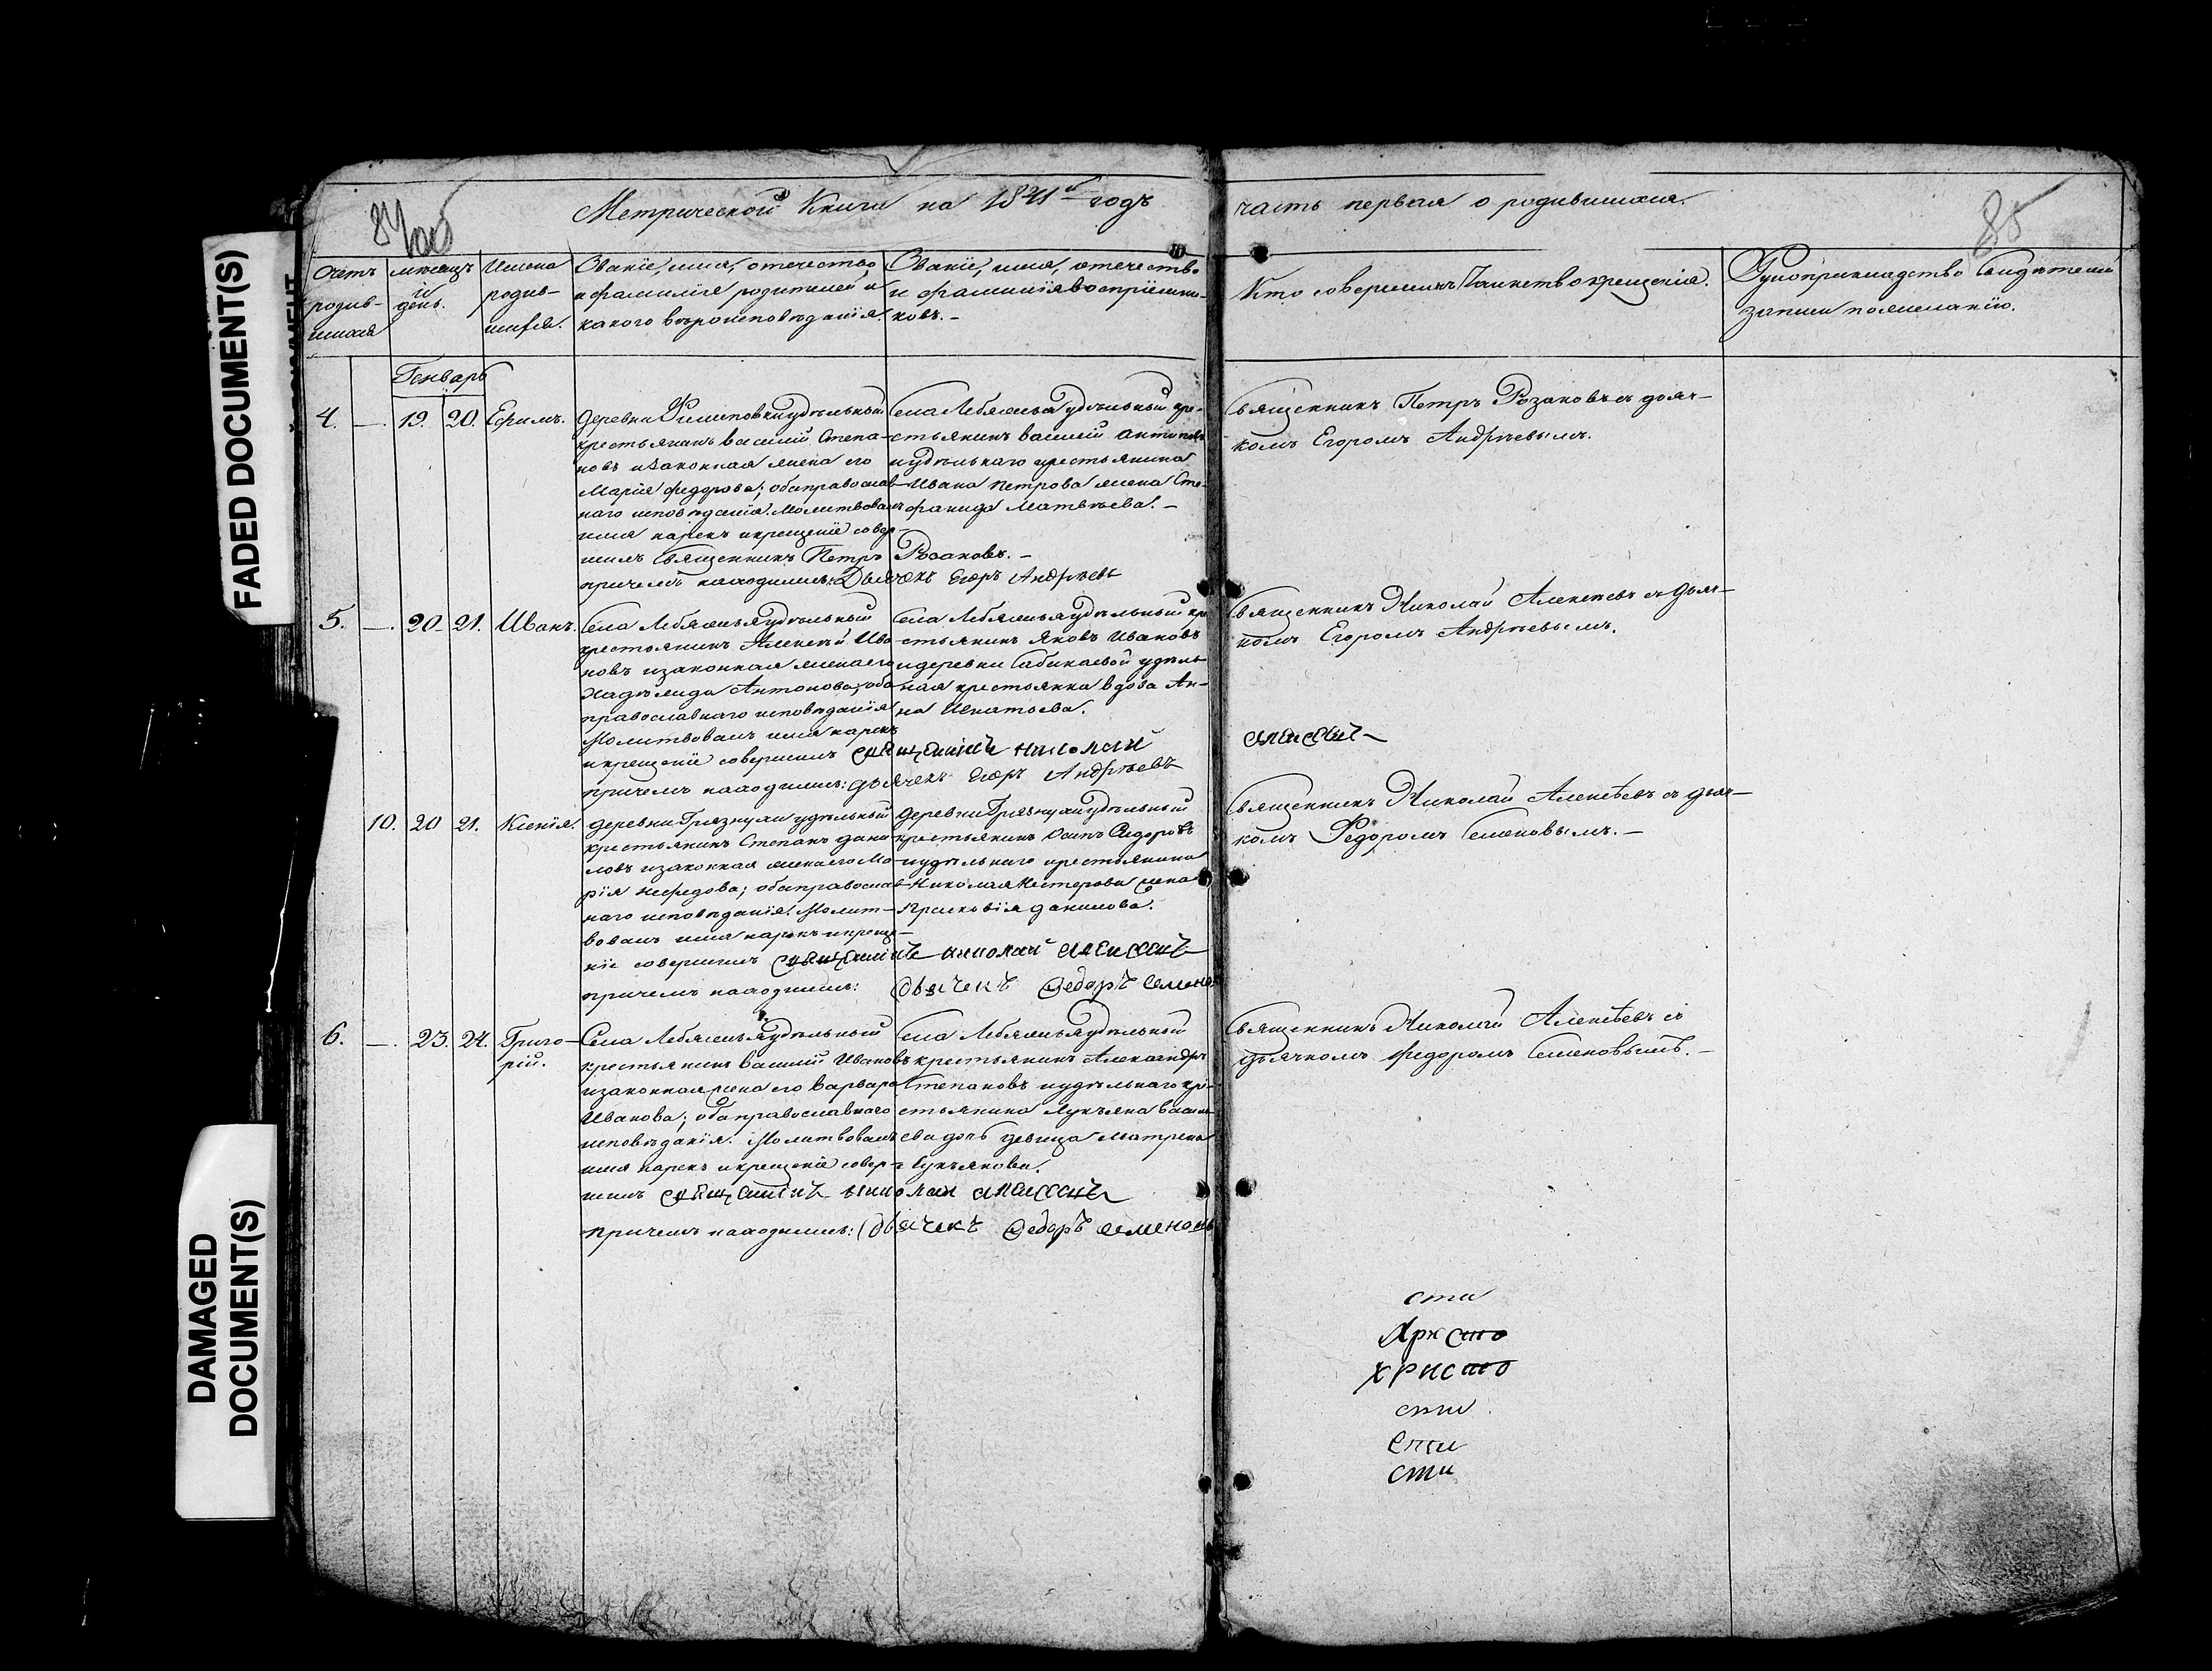 FADED DOCUMENT(S)
DAMAGED
DOCUMENT(S)
84 об
Метрической Книги на 1841й годъ
часть первая о родившихся.
85
Счетъ
родив-
шихся
мѣсяцъ
и
день.
Имена
родив-
шихся.
Званіе, имя, отечество,
и фамилія родителей и
какого вѣроисповѣданія.
Званіе, имя, отечество
и фамилія воспріемни-
ковъ.-
Кто совершилъ Таинство крещенія.
Рукоприкладство свидѣтелей
записи по желанію.
Генварь
4. — 19. 20. Ефимъ.
деревни Филиповки удѣльный
крестьянинъ Василій Степа-
новъ и законная жена его
Марія Федорова; оба православ-
наго исповѣданія. Молитвовалъ
имя нарекъ и крещеніе совер-
шилъ Священникъ Петръ Розановъ.-
причемъ находились: Дьячекъ Егоръ Андрѣевъ
Села Лебяжья удѣльный кре-
стьянинъ Василій Антиповъ
и удѣльнаго крестьянина
Ивана Петрова жена Сте-
фанида Матвѣева.-
Священникъ Петръ Розановъ съ дьяч-
комъ Егоромъ Андрѣевымъ.
5. — 20. 21. Иванъ.
Села Лебяжья удѣльный
крестьянинъ Алексѣй Ива-
новъ и законная жена его
Надѣжда Антонова; оба
православнаго исповѣданія
Молитвовалъ имя нарекъ
и крещеніе совершилъ священникъ николай алексеевъ
причемъ находились: дьячекъ Егоръ Андрѣевъ
Села Лебяжья удѣльный кре
стьянинъ Яковъ Ивановъ
и деревни Сабакаевой удѣль-
ная крестьянка вдова Ан-
на Игнатьева.
Священникъ Николай Алексѣевъ съ дьяч-
комъ Егоромъ Андрѣевымъ.
10. 20 21. Ксенія.
деревни Грязнухи удѣльный
крестьянинъ Степанъ Дани-
ловъ и законная жена его Ма-
рія Нефедова; оба православ-
наго исповѣданія. Молит-
вовалъ имя нарекъ и креще-
ніе совершилъ священникъ николай алексеевъ
причемъ находились: дьячекъ Федоръ Семено
деревни Грязнухи удѣльный
крестьянинъ Осипъ Сидоровъ
и удѣльнаго крестьянина
Николая Нестерова жена
Прасковія Данилова.
Священникъ Николай Алексѣевъ съ дьяч-
комъ Федоромъ Семеновымъ.-
6. — 23. 24. Григо-
рій.
Села Лебяжья удѣльный
крестьянинъ Василій Ивановъ
и законная жена его Варвара
Иванова; оба православнаго
исповѣданія. Молитвовалъ
имя нарекъ и крещеніе совер-
шилъ священникъ николай алексеевъ
причемъ находились: дьячекъ Федоръ Семеновъ
Села Лебяжья удѣльной
крестьянинъ Александръ
Степановъ и удѣльнаго кре-
стьянина Лукъяна Василь-
ева дочь девица Матрена
Лукъянова.
Священникъ Николай Алексѣевъ съ
дьячкомъ Федоромъ Семеновымъ.-
сти
Христо
Христо
сти
Сти
сти